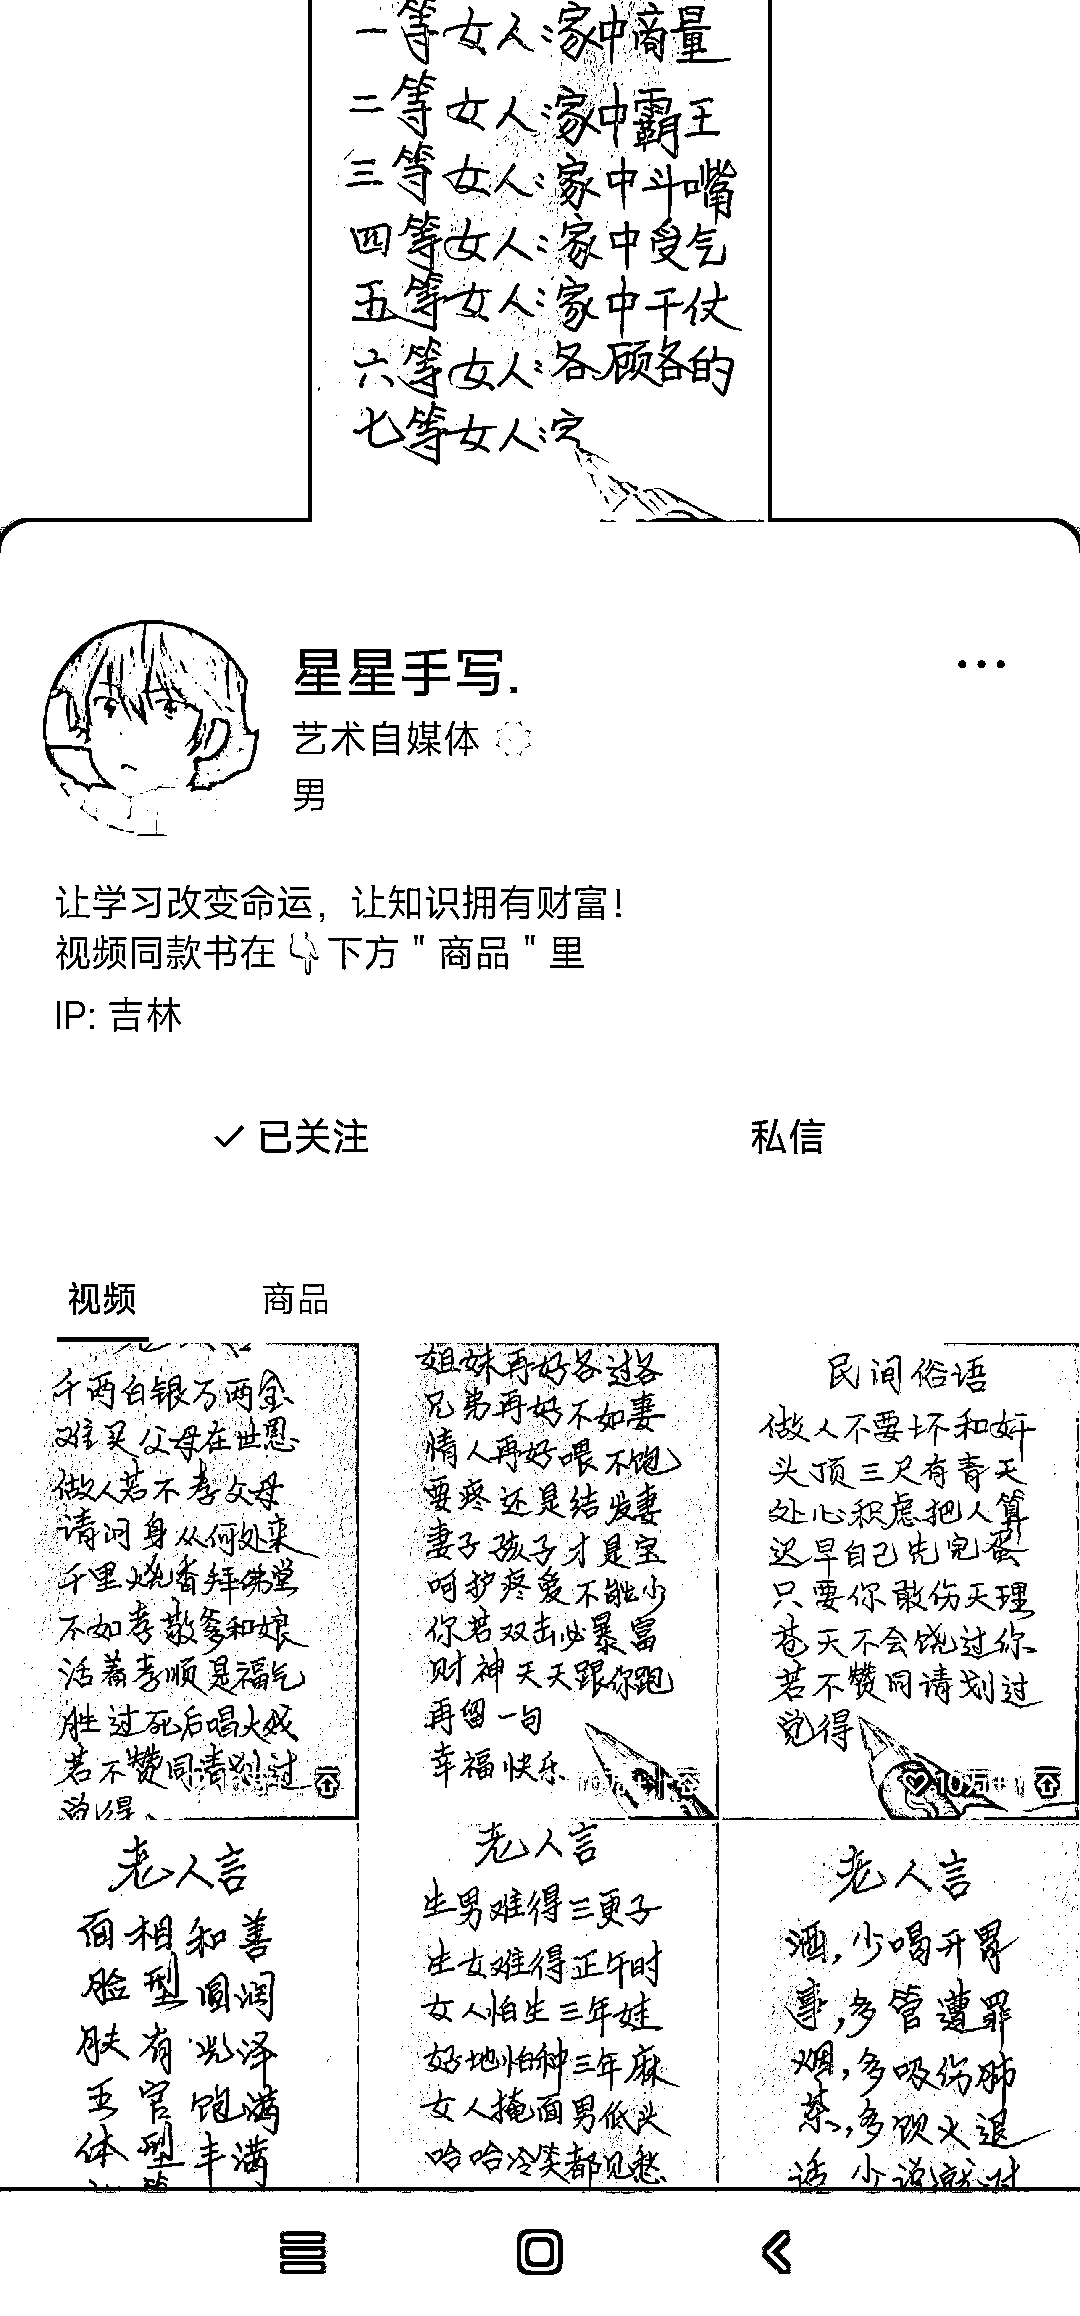 一等女人:家中商量
二等女人:家中霸王
三等女人:家中斗嘴
四等女人:家中受气
五等女人:家中干仗
六等女人:各顾各的
七等女人:
星星手写.
艺术自媒体
男
让学习改变命运，让知识拥有财富！
视频同款书在👇下方＂商品＂里
IP: 吉林
已关注
私信
视频
商品
千两白银万两金
难买父母在世恩
做人若不孝父母
请问身从何处来
千里烧香拜佛堂
不如孝敬爹和娘
活着孝顺是福气
胜过死后唱大戏
若不赞同请划过
觉得
姐妹再好各过各
兄弟再好不如妻
情人再好喂不饱
要疼还是结发妻
妻子孩子才是宝
呵护疼爱不能少
你若双击必暴富
财神天天跟你跑
再留一句
幸福快乐
民间俗语
做人不要坏和奸
头顶三尺有青天
处心积虑把人算
迟早自己先完蛋
只要你敢伤天理
苍天不会饶过你
若不赞同请划过
觉得
10万
老人言
面相和善
脸型圆润
肤有光泽
五官饱满
体型丰满
老人言
生男难得三更子
生女难得正午时
女人怕生三年娃
好地怕种三年麻
女人掩面男低头
哈哈冷笑都见愁
老人言
酒,少喝开胃
事,多管遭罪
烟,多吸伤肺
茶,多饮火退
话 少说